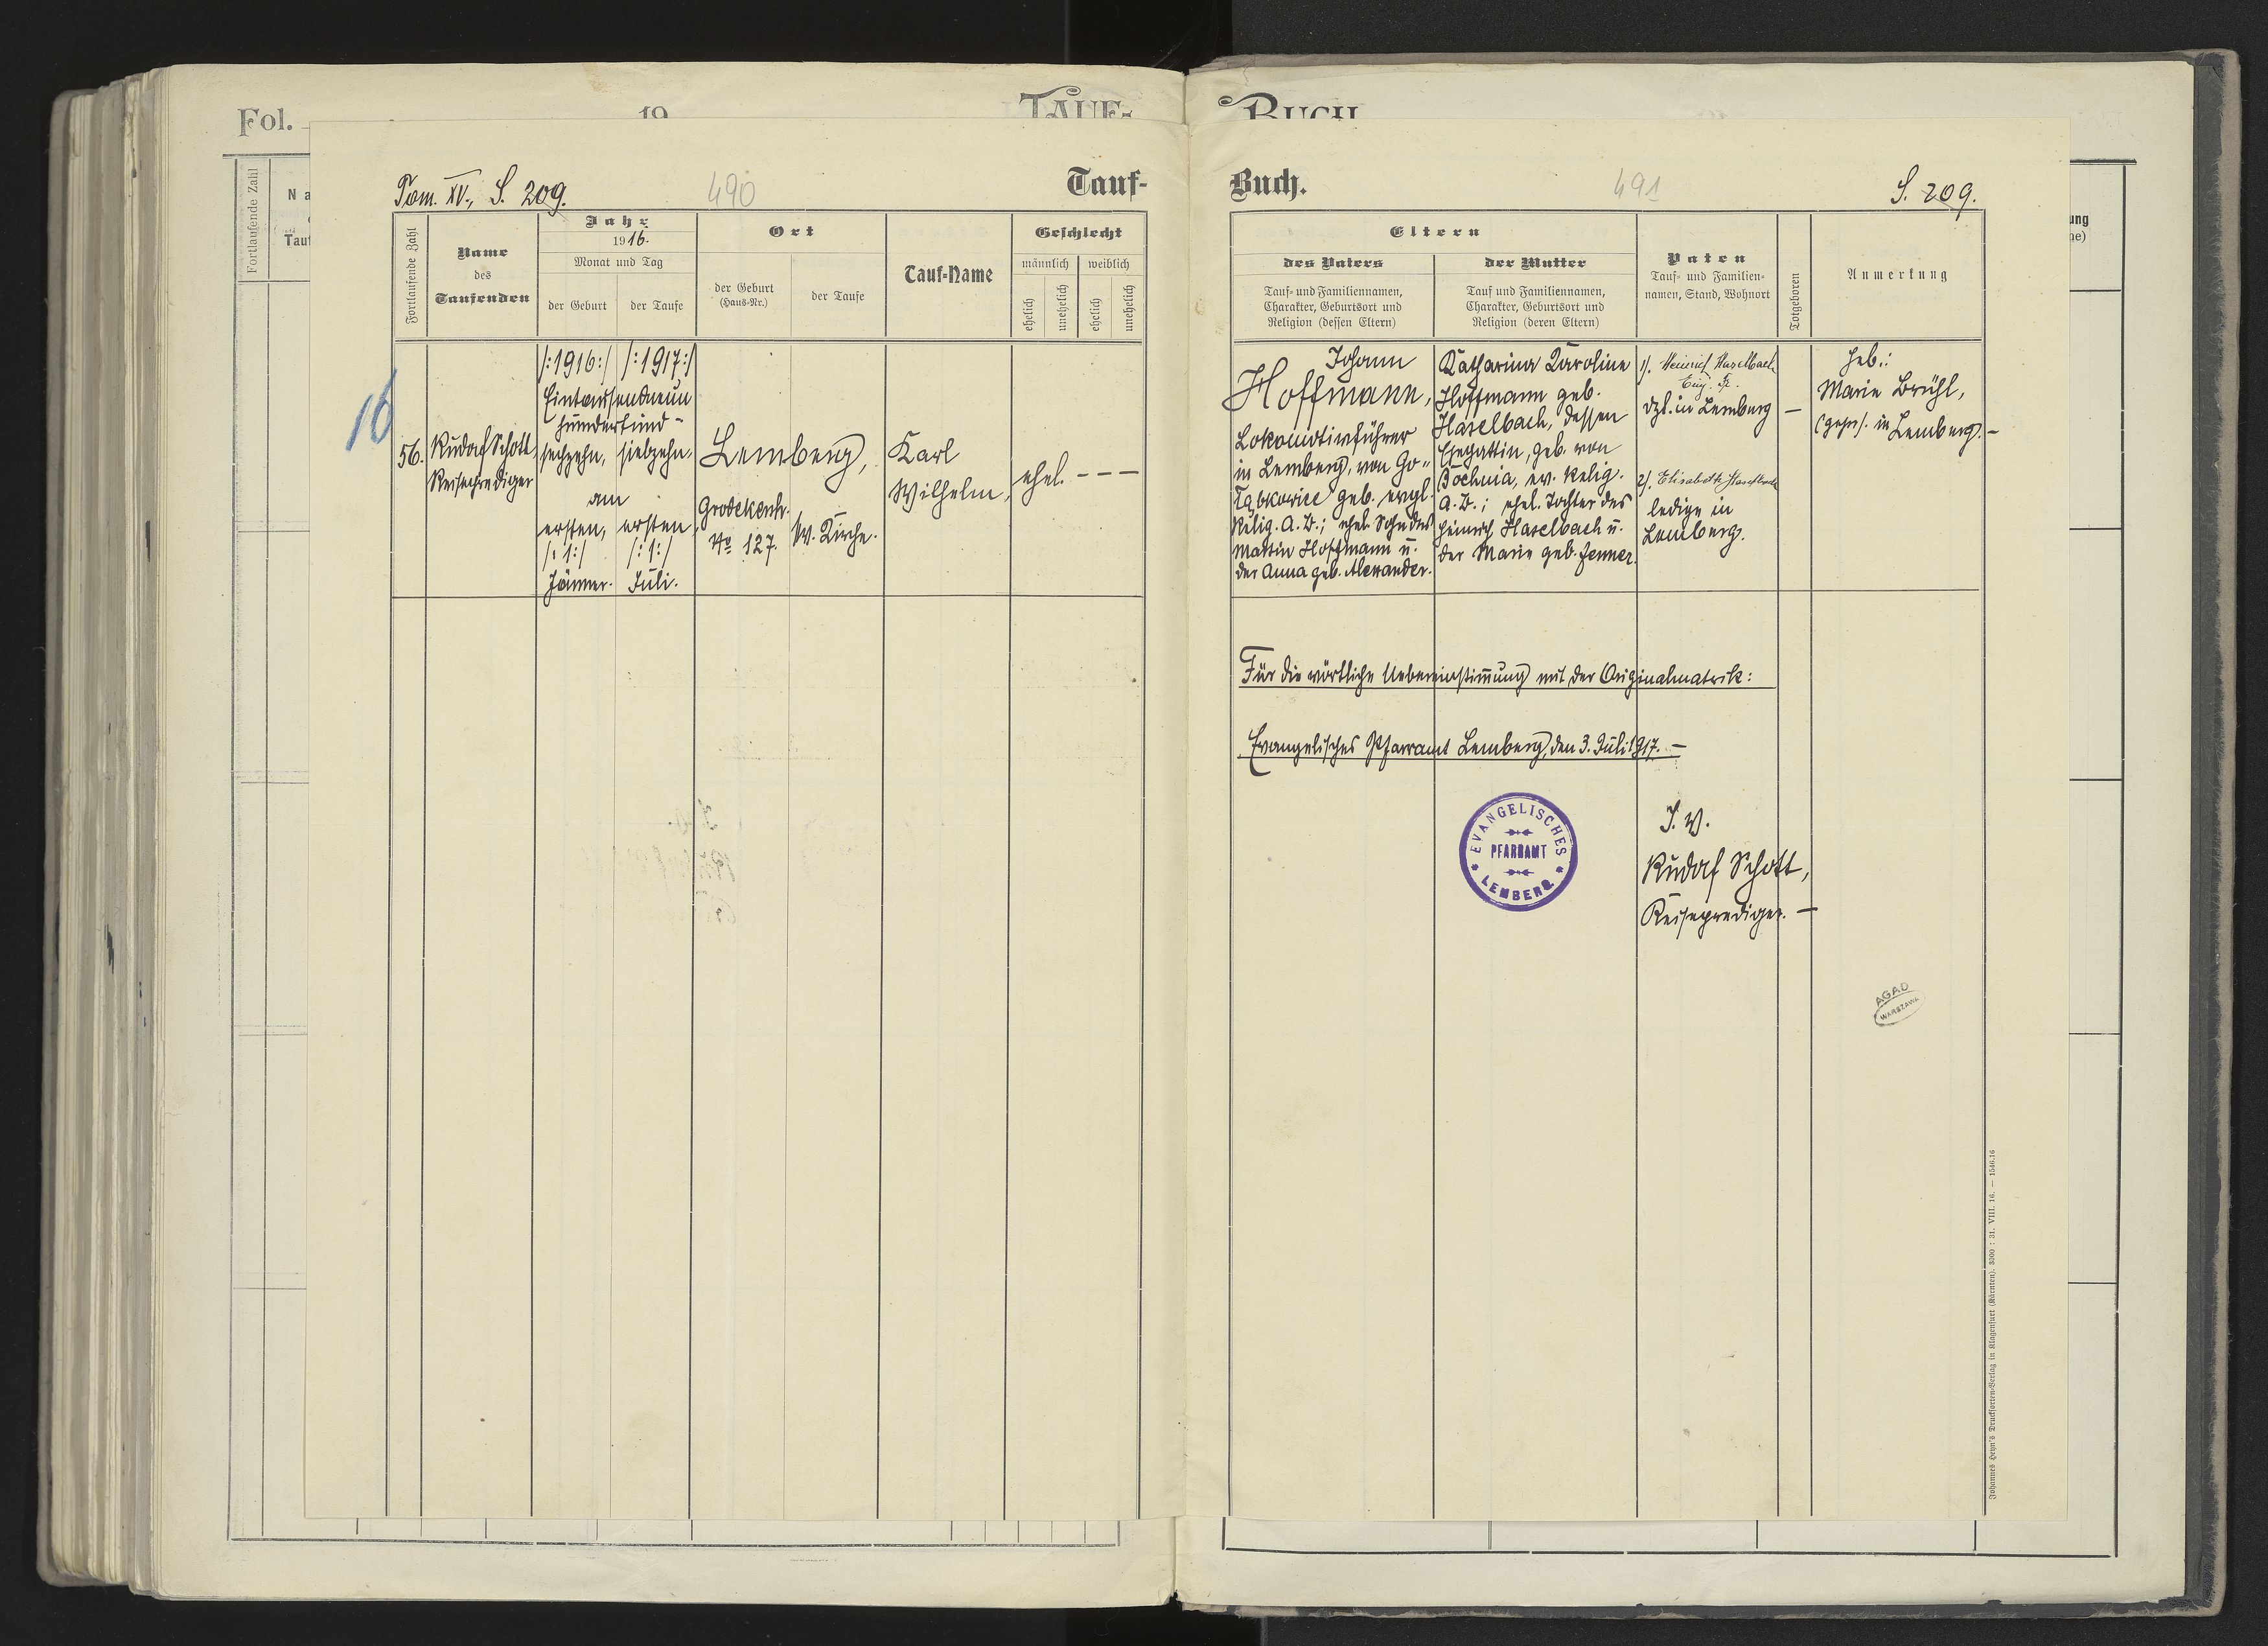 Fol.
19
TAUF-
BUCH
Fortlaufende Zahl
Na
Tauf
ung
ne)
Tom. XV., S. 209.
490
Tauf-
Fortlaufende Zahl
Name
des
Taufenden
Jahr
1916.
Monat und Tag
der Geburt
der Taufe
Ort
der Geburt
(Haus-Nr.)
der Taufe
Tauf-Name
Geschlecht
männlich
weiblich
ehelich
unehelich
ehelich
unehelich
16
56.
Rudolf Schott,
Reiseprediger
/:1916:/ /:1917:/
Eintausendneun
hundertund-
sechzehn, siebzehn,
am
ersten, ersten
/:1:/ /:1:/
Jänner. Juli.
Lemberg,
Grodekerstr.
No 127.
ev. Kirche.
Karl
Wilhelm,
ehel. - - -
Buch.
491
S. 209.
Eltern
des Vaters
Tauf- und Familiennamen,
Charakter, Geburtsort und
Religion (dessen Eltern)
der Mutter
Tauf und Familiennamen,
Charakter, Geburtsort und
Religion (deren Eltern)
Paten
Tauf- und Familien-
namen, Stand, Wohnort
Totgeboren
Anmerkung
Johann
Hoffmann,
Lokomotivführer
in Lemberg, von Go-
geb. evgl.
Relig. A. B.; ehel. Sohn des
Martin Hoffmann u.
der Anna geb. Alexander.
Katharina Karoline
Hoffmann geb.
Haselbach, dessen
Ehegattin, geb. von
Bochnia, ev. Relig.
A. B.; ehel. Tochter des
Heinrich Haselbach u.
der Marie geb. Zenner.
1). Heinrich Haselbach
dzt. in Lemberg
2). Elisabeth Haselbach
ledige in
Lemberg.
—
Heb.:
Marie Brühl,
(gepr). in Lemberg. —
Für die wörtliche Uebereinstimmung mit der Originalmatrik:
Evangelisches Pfarramt Lemberg, den 3. Juli 1917. —
EVANGELISCHES
PFARRAMT
LEMBERG
I. V.
Rudolf Schott,
Reiseprediger. —
AGAD
WARSZAWA
Johannes Heyn's Drucksorten-Verlag in Klagenfurt (Kärnten). 3000 : 31. VIII. 16. — 1546.16